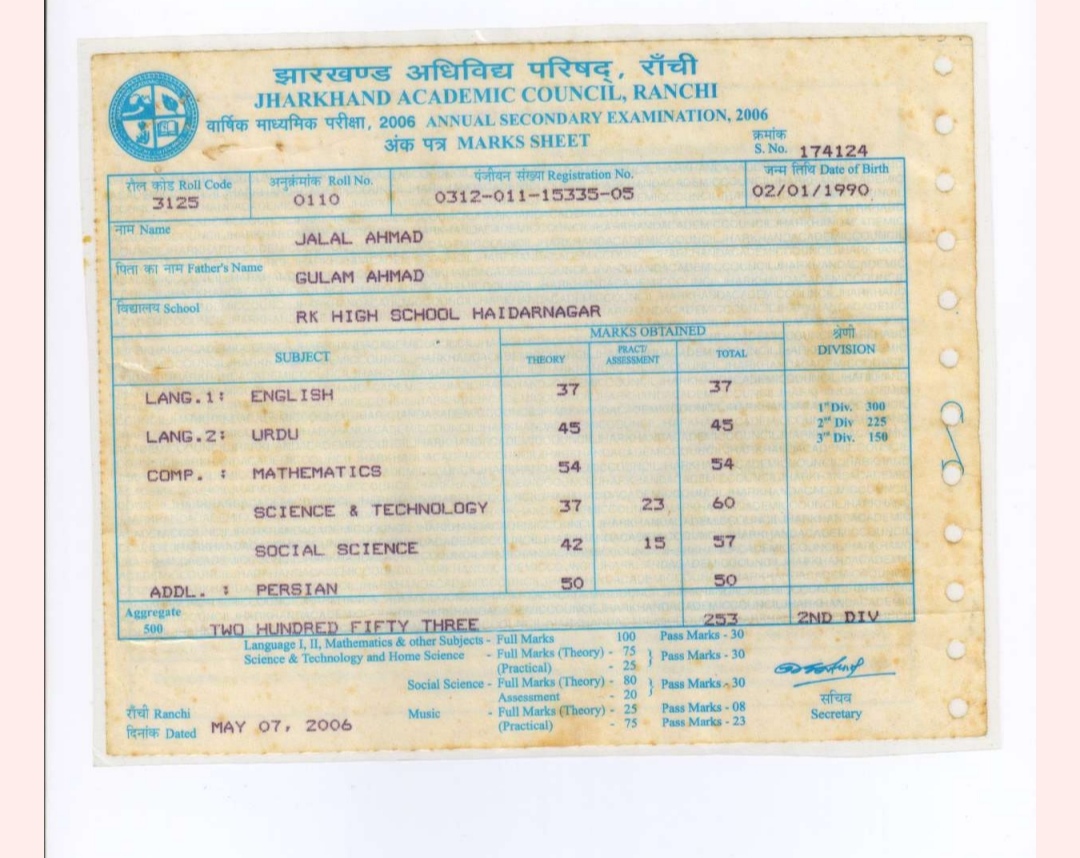 झारखण्ड अधिविद्य परिषद्, राँची
JHARKHAND ACADEMIC COUNCIL, RANCHI
वार्षिक माध्यमिक परीक्षा, 2006 ANNUAL SECONDARY EXAMINATION, 2006
अंक पत्र MARKS SHEET
क्रमांक
S. No. 174124
रौल कोड Roll Code अनुक्रमांक Roll No. पंजीयन संख्या Registration No. जन्म तिथि Date of Birth
3125 0110 0312-011-15335-05 02/01/1990
नाम Name JALAL AHMAD
पिता का नाम Father's Name GULAM AHMAD
विद्यालय School RK HIGH SCHOOL HAIDARNAGAR
SUBJECT MARKS OBTAINED श्रेणी DIVISION
THEORY PRACT/ASSESSMENT TOTAL
LANG.1: ENGLISH 37 37
1st Div. 300
LANG.2: URDU 45 45
2nd Div 225
3rd Div. 150
COMP. : MATHEMATICS 54 54
SCIENCE & TECHNOLOGY 37 23 60
SOCIAL SCIENCE 42 15 57
ADDL. : PERSIAN 50 50
Aggregate 500 TWO HUNDRED FIFTY THREE 253 2ND DIV
Language I, II, Mathematics & other Subjects - Full Marks 100 Pass Marks - 30
Science & Technology and Home Science - Full Marks (Theory) - 75 } Pass Marks - 30
(Practical) - 25
Social Science - Full Marks (Theory) - 80 } Pass Marks - 30
Assessment - 20
Music - Full Marks (Theory) - 25 Pass Marks - 08
(Practical) - 75 Pass Marks - 23
राँची Ranchi
दिनांक Dated MAY 07, 2006
सचिव
Secretary